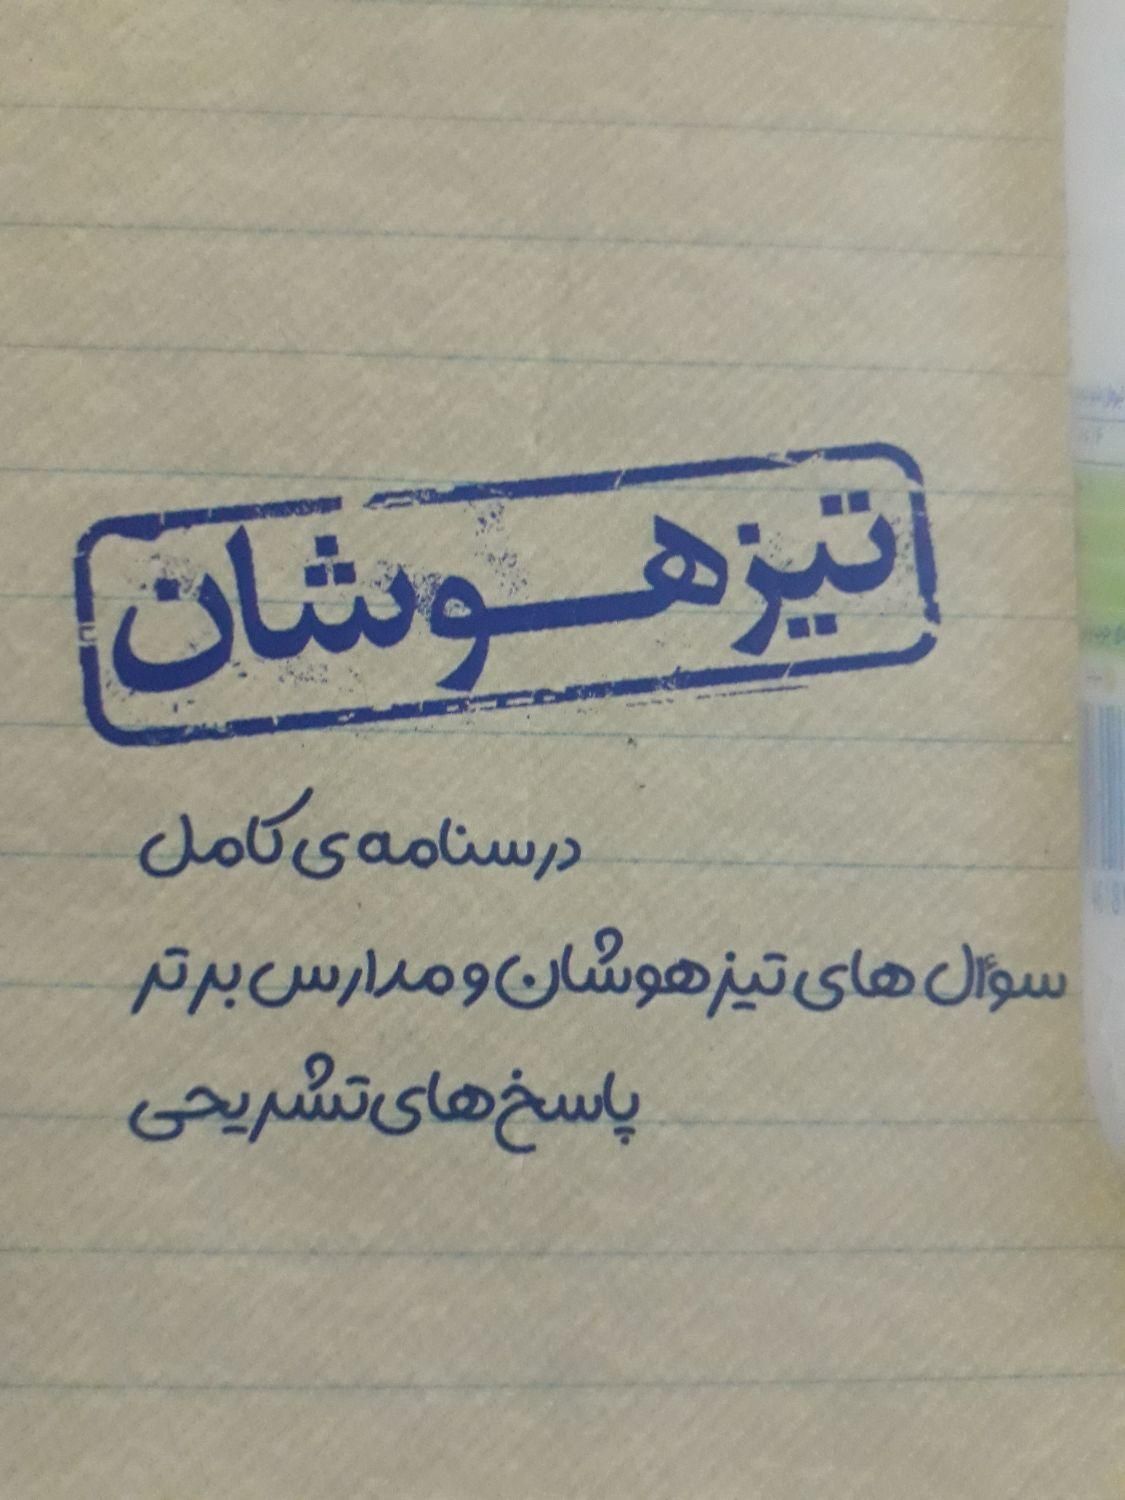 تیزهوشان
درسنامه‌ی کامل
سؤال های تیزهوشان و مدارس برتر
پاسخ های تشریحی